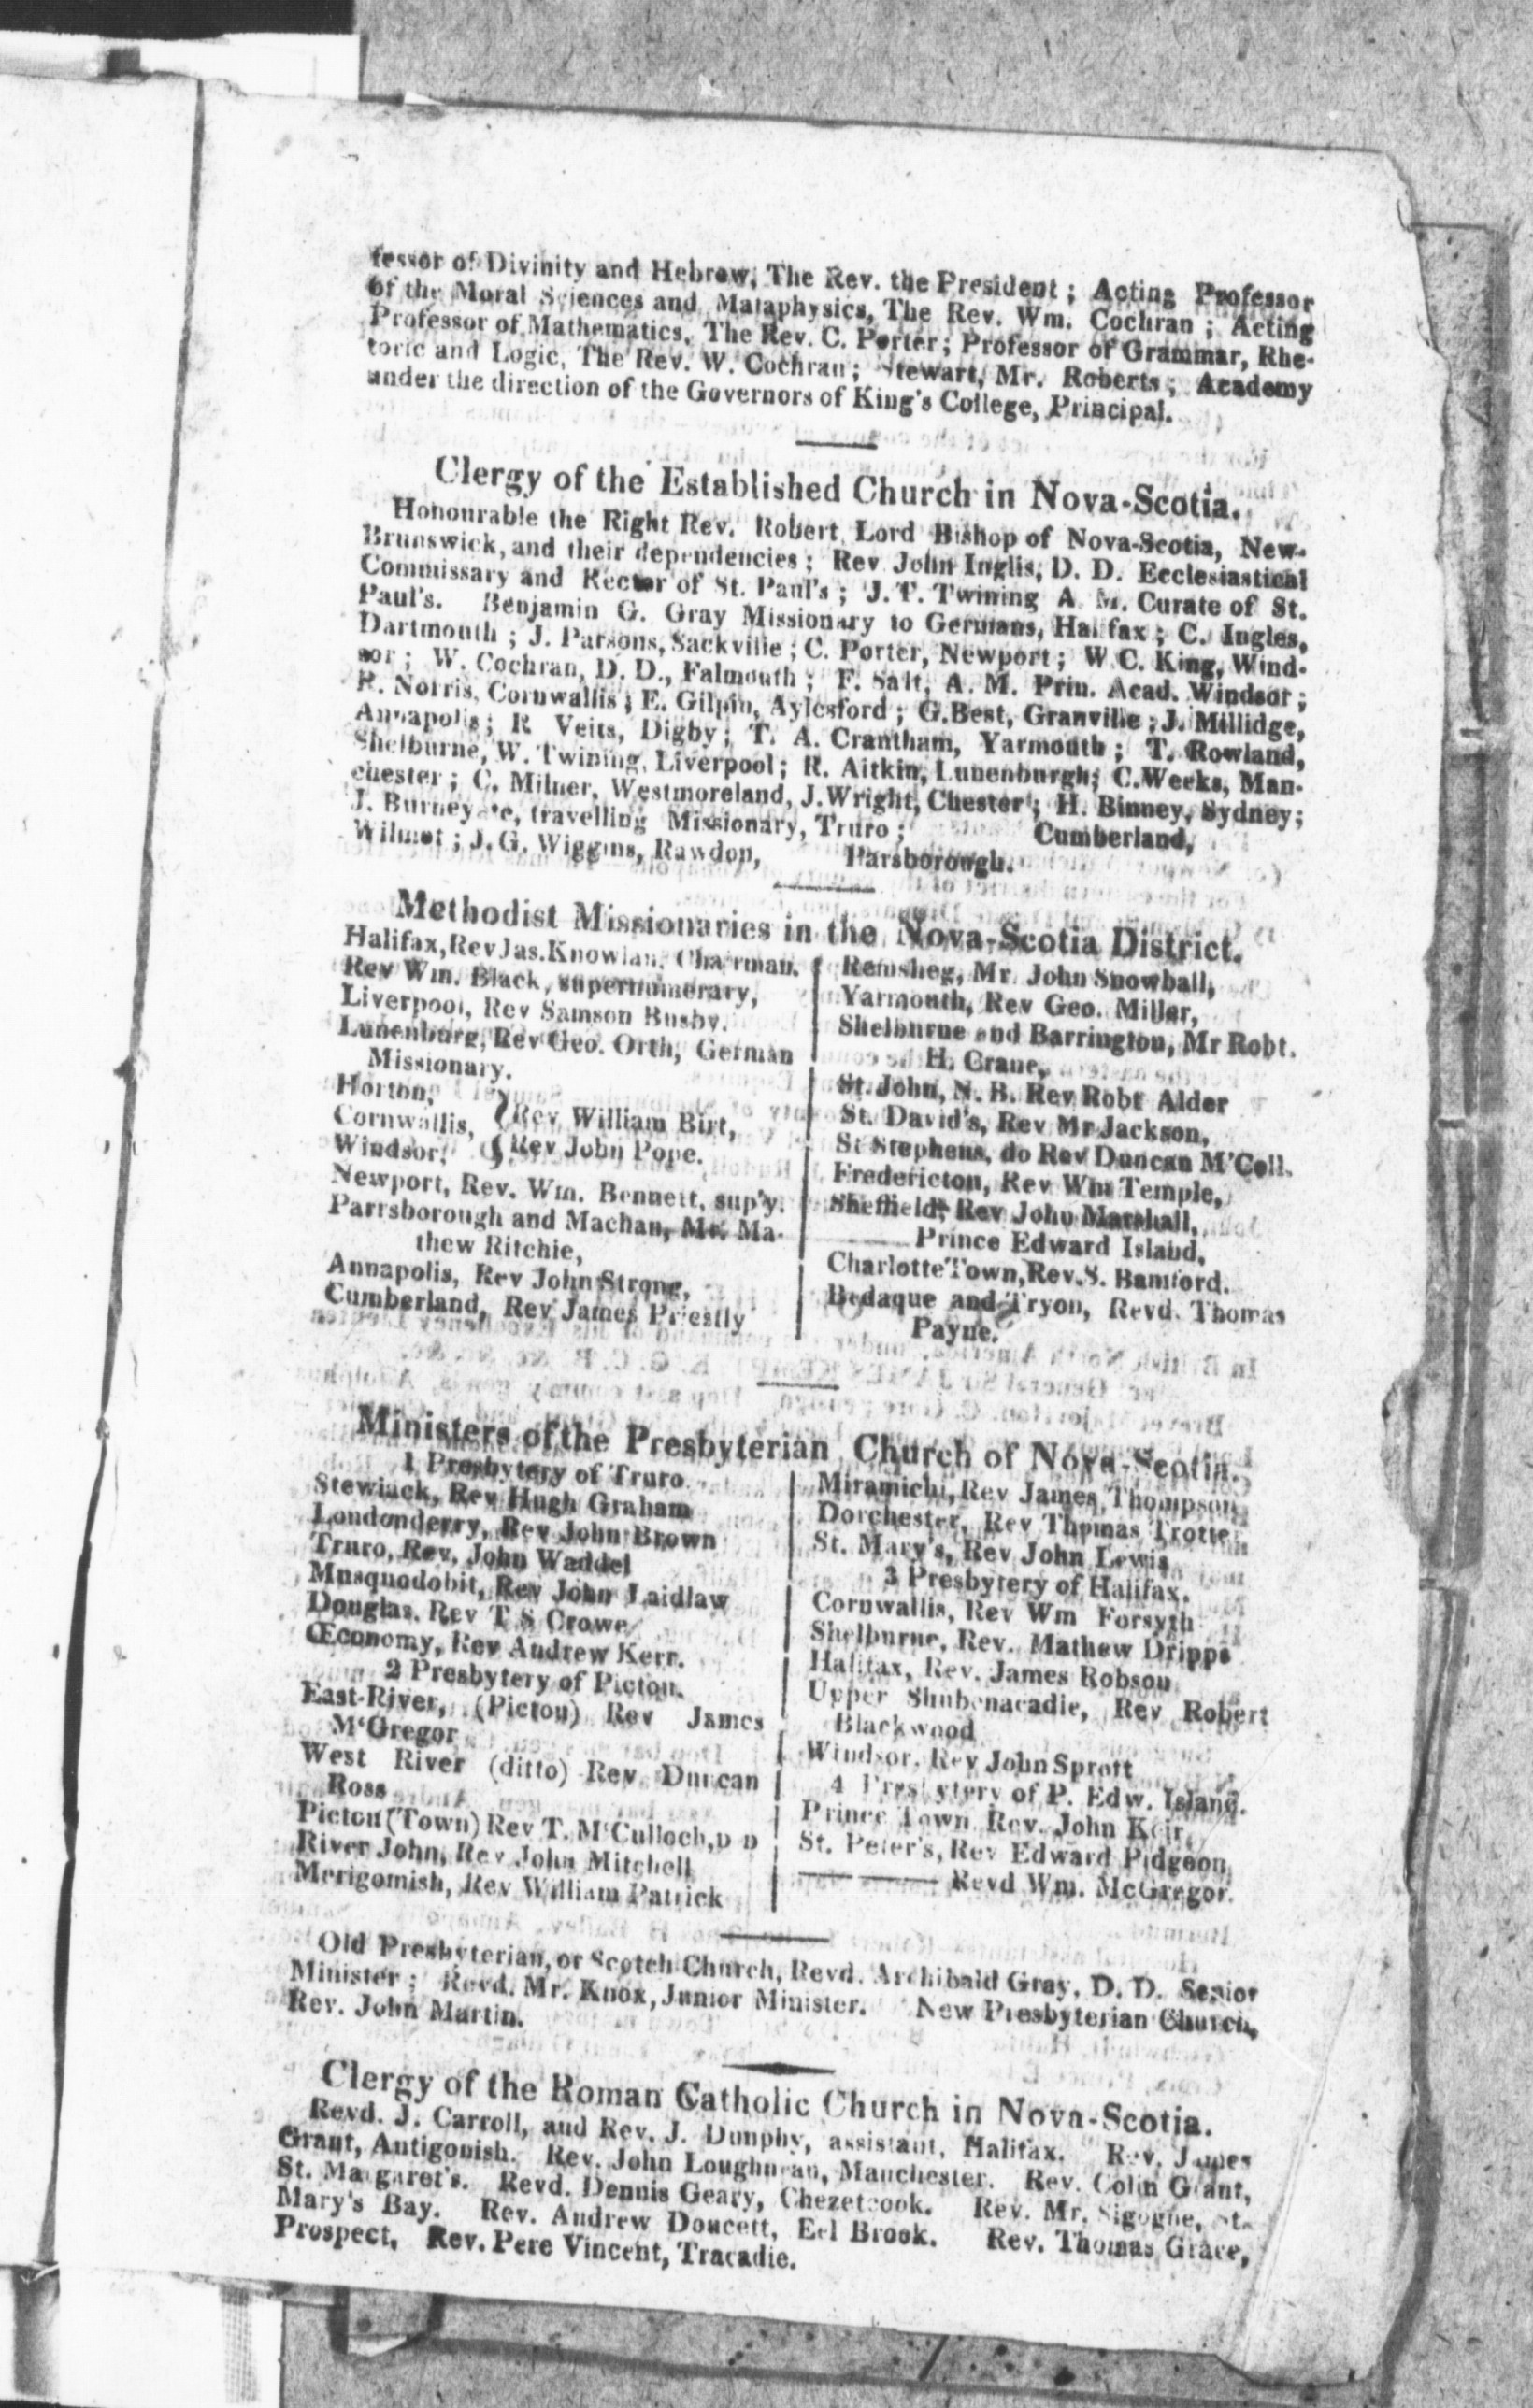 fessor of Divinity and Hebrew, The Rev. the President; Acting Professor
of the Moral Sciences and Mataphysics, The Rev. Wm. Cochran; Acting
Professor of Mathematics, The Rev. C. Porter; Professor of Grammar, Rhe-
toric and Logic, The Rev. W. Cochran; Stewart, Mr. Roberts; Academy
under the direction of the Governors of King's College, Principal.
Clergy of the Established Church in Nova-Scotia.
Honourable the Right Rev. Robert Lord Bishop of Nova-Scotia, New-
Brunswick, and their dependencies; Rev John Inglis, D. D. Ecclesiastical
Commissary and Rector of St. Paul's; J. T. Twining A. M. Curate of St.
Paul's. Benjamin G. Gray Missionary to Germans, Halifax; C. Ingles,
Dartmouth; J. Parsons, Sackville; C. Porter, Newport; W C. King, Wind-
sor; W. Cochran, D. D., Falmouth; F. Salt, A. M. Prin. Acad. Windsor;
R. Norris, Cornwallis; E. Gilpin, Aylesford; G. Best, Granville; J. Millidge,
Annapolis; R Veits, Digby; T. A. Crantham, Yarmouth; T. Rowland,
Shelburne, W. Twining, Liverpool; R. Aitkin, Lunenburgh; C. Weeks, Man-
chester; C. Milner, Westmoreland, J. Wright, Chester; H. Binney, Sydney;
J. Burney travelling Missionary, Truro; Cumberland,
Wilmot; J. G. Wiggins, Rawdon, Parsborough.
Methodist Missionaries in the Nova-Scotia District.
Halifax, Rev Jas. Knowlan, Chairman.
Rev Wm. Black, supernumerary,
Liverpool, Rev Samson Busby.
Lunenburg, Rev Geo. Orth, German
Missionary.
Horton,
Cornwallis, } Rev William Birt,
Windsor, } Rev John Pope.
Newport, Rev. Wm. Bennett, sup'y.
Parrsborough and Machan, Mr. Ma-
thew Ritchie,
Annapolis, Rev John Strong,
Cumberland, Rev James Priestly
Remsheg, Mr John Snowball,
Yarmouth, Rev Geo. Miller,
Shelburne and Barrington, Mr Robt.
H. Crane,
St. John, N. B. Rev Robt Alder
St. David's, Rev Mr Jackson,
St Stephens, do Rev Duncan M'Coll.
Fredericton, Rev Wm Temple,
Sheffield, Rev John Marshall,
Prince Edward Island,
Charlotte Town, Rev. S. Bamford.
Bedaque and Tryon, Revd. Thomas
Payne.
Ministers of the Presbyterian Church of Nova-Scotia.
1 Presbytery of Truro
Stewiack, Rev Hugh Graham
Londonderry, Rev John Brown
Truro, Rev. John Waddel
Musquodobit, Rev John Laidlaw
Douglas, Rev T S Crowe
Œconomy, Rev Andrew Kerr.
2 Presbytery of Picton.
East-River, (Pictou) Rev James
M'Gregor
West River (ditto) Rev Duncan
Ross
Picton (Town) Rev T. M'Culloch, D D
River John, Rev John Mitchell
Merigomish, Rev William Patrick
Miramichi, Rev James Thompson
Dorchester, Rev Thomas Trotter
St. Mary's, Rev John Lewis
3 Presbytery of Halifax.
Cornwallis, Rev Wm Forsyth
Shelburne, Rev. Mathew Dripps
Halifax, Rev. James Robson
Upper Shubenacadie, Rev Robert
Blackwood
Windsor, Rev John Sprott
4 Presbytery of P. Edw. Island.
Prince Town Rev. John Keir,
St. Peter's, Rev Edward Pidgeon,
Revd Wm. McGregor.
Old Presbyterian, or Scotch Church, Revd. Archibald Gray, D. D. Senior
Minister; Revd. Mr. Knox, Junior Minister. New Presbyterian Church,
Rev. John Martin.
Clergy of the Roman Catholic Church in Nova-Scotia.
Revd. J. Carroll, and Rev. J. Dunphy, assistant, Halifax. Rev. James
Grant, Antigonish. Rev. John Loughnan, Manchester. Rev. Colin Grant,
St. Margaret's. Revd. Dennis Geary, Chezetcook. Rev. Mr. Sigogne, St.
Mary's Bay. Rev. Andrew Doucett, Eel Brook. Rev. Thomas Grace,
Prospect, Rev. Pere Vincent, Tracadie.